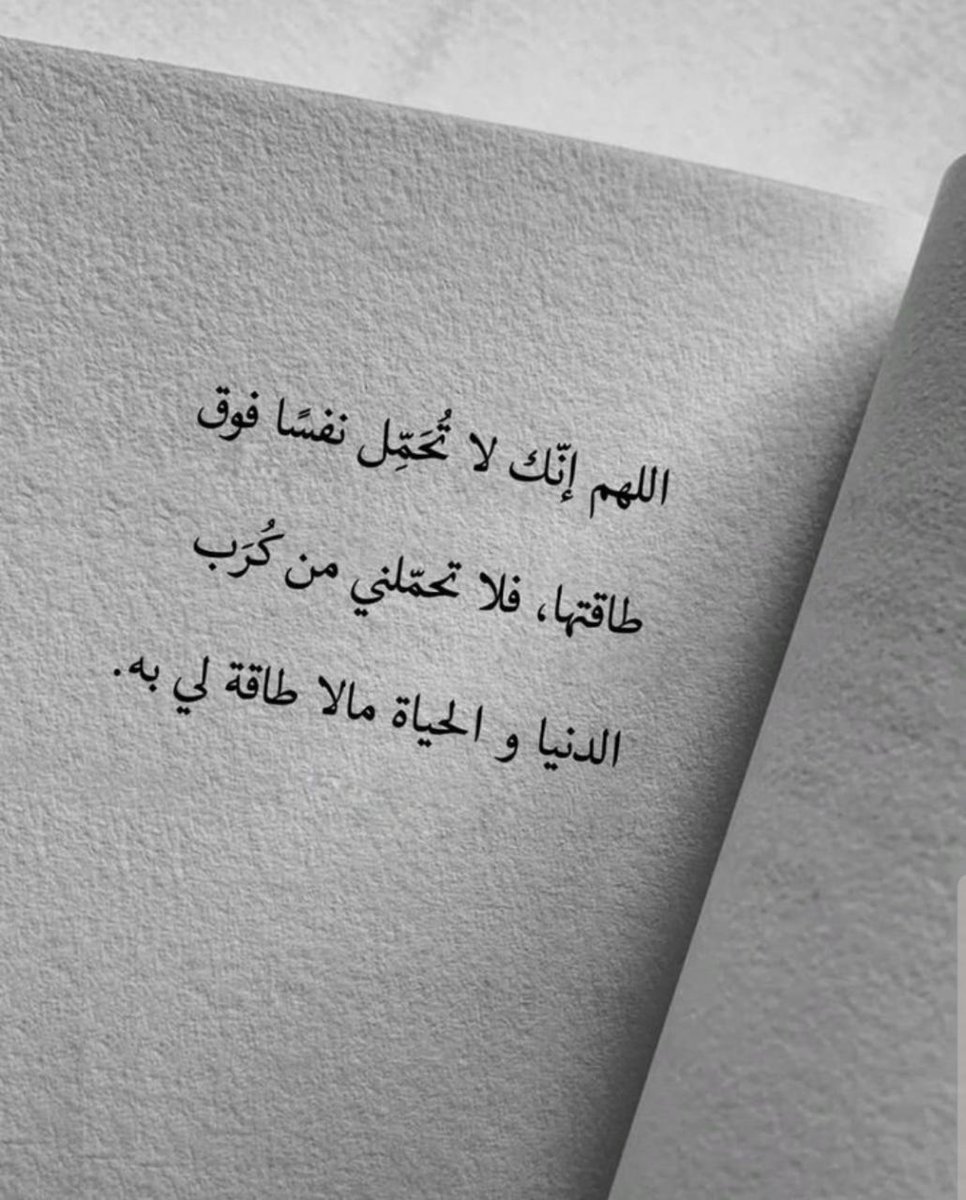 اللهم إنّك لا تُحَمِّل نفسًا فوق
طاقتها، فلا تحمّلني من كُرَب
الدنيا و الحياة مالا طاقة لي به.